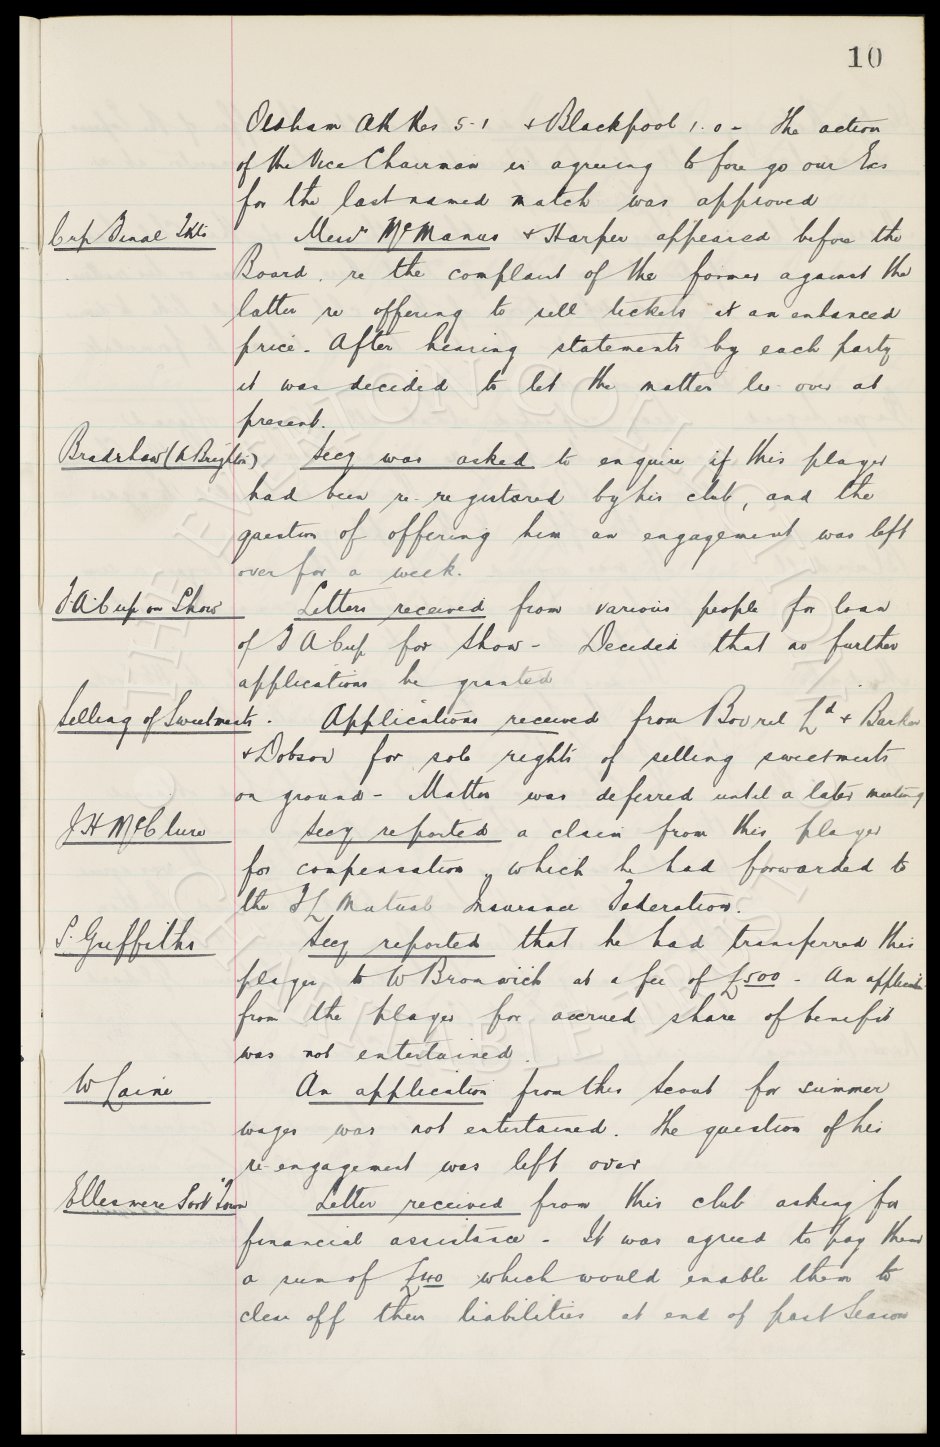 10
Oldham Ath Res 5-1 & Blackpool 1.0 - The action
of the Vice Chairman in agreeing to fore go our Exs
for the last named match was approved
Cup Final Tkts
Messrs McManus & Harper appeared before the
Board. re the complaint of the former against the
latter re offering to sell tickets at an enhanced
price. After hearing statements by each party
it was decided to let the matter lie over at
present.
Bradshaw (N Brighton)
Secy was asked to enquire if this player
had been re-registered by his club, and the
question of offering him an engagement was left
over for a week.
F A Cup on Show
Letters received from various people for loan
of F A Cup for show - Decided that no further
applications be granted
Selling of Sweetmeats.
Applications received from Bovril Ld & Barker
& Dobson for sole rights of selling sweetmeats
on ground - Matter was deferred until a later meeting
J H McClure
Secy reported a claim from this player
for compensation, which he had forwarded to
the F L Mutual Insurance Federation.
S. Griffiths
Secy reported that he had transferred this
player to W Bromwich at a fee of £500 - An applicatn
from the player for accrued share of benefit
was not entertained.
W Laine
An application from this Scout for summer
wages was not entertained. The question of his
re-engagement was left over
Ellesmere Port Town
Letter received from this club asking for
financial assistance - It was agreed to pay them
a sum of £40 which would enable them to
clear off their liabilities at end of past Season
THE EVERTON COLLECTION
CHARITABLE TRUST